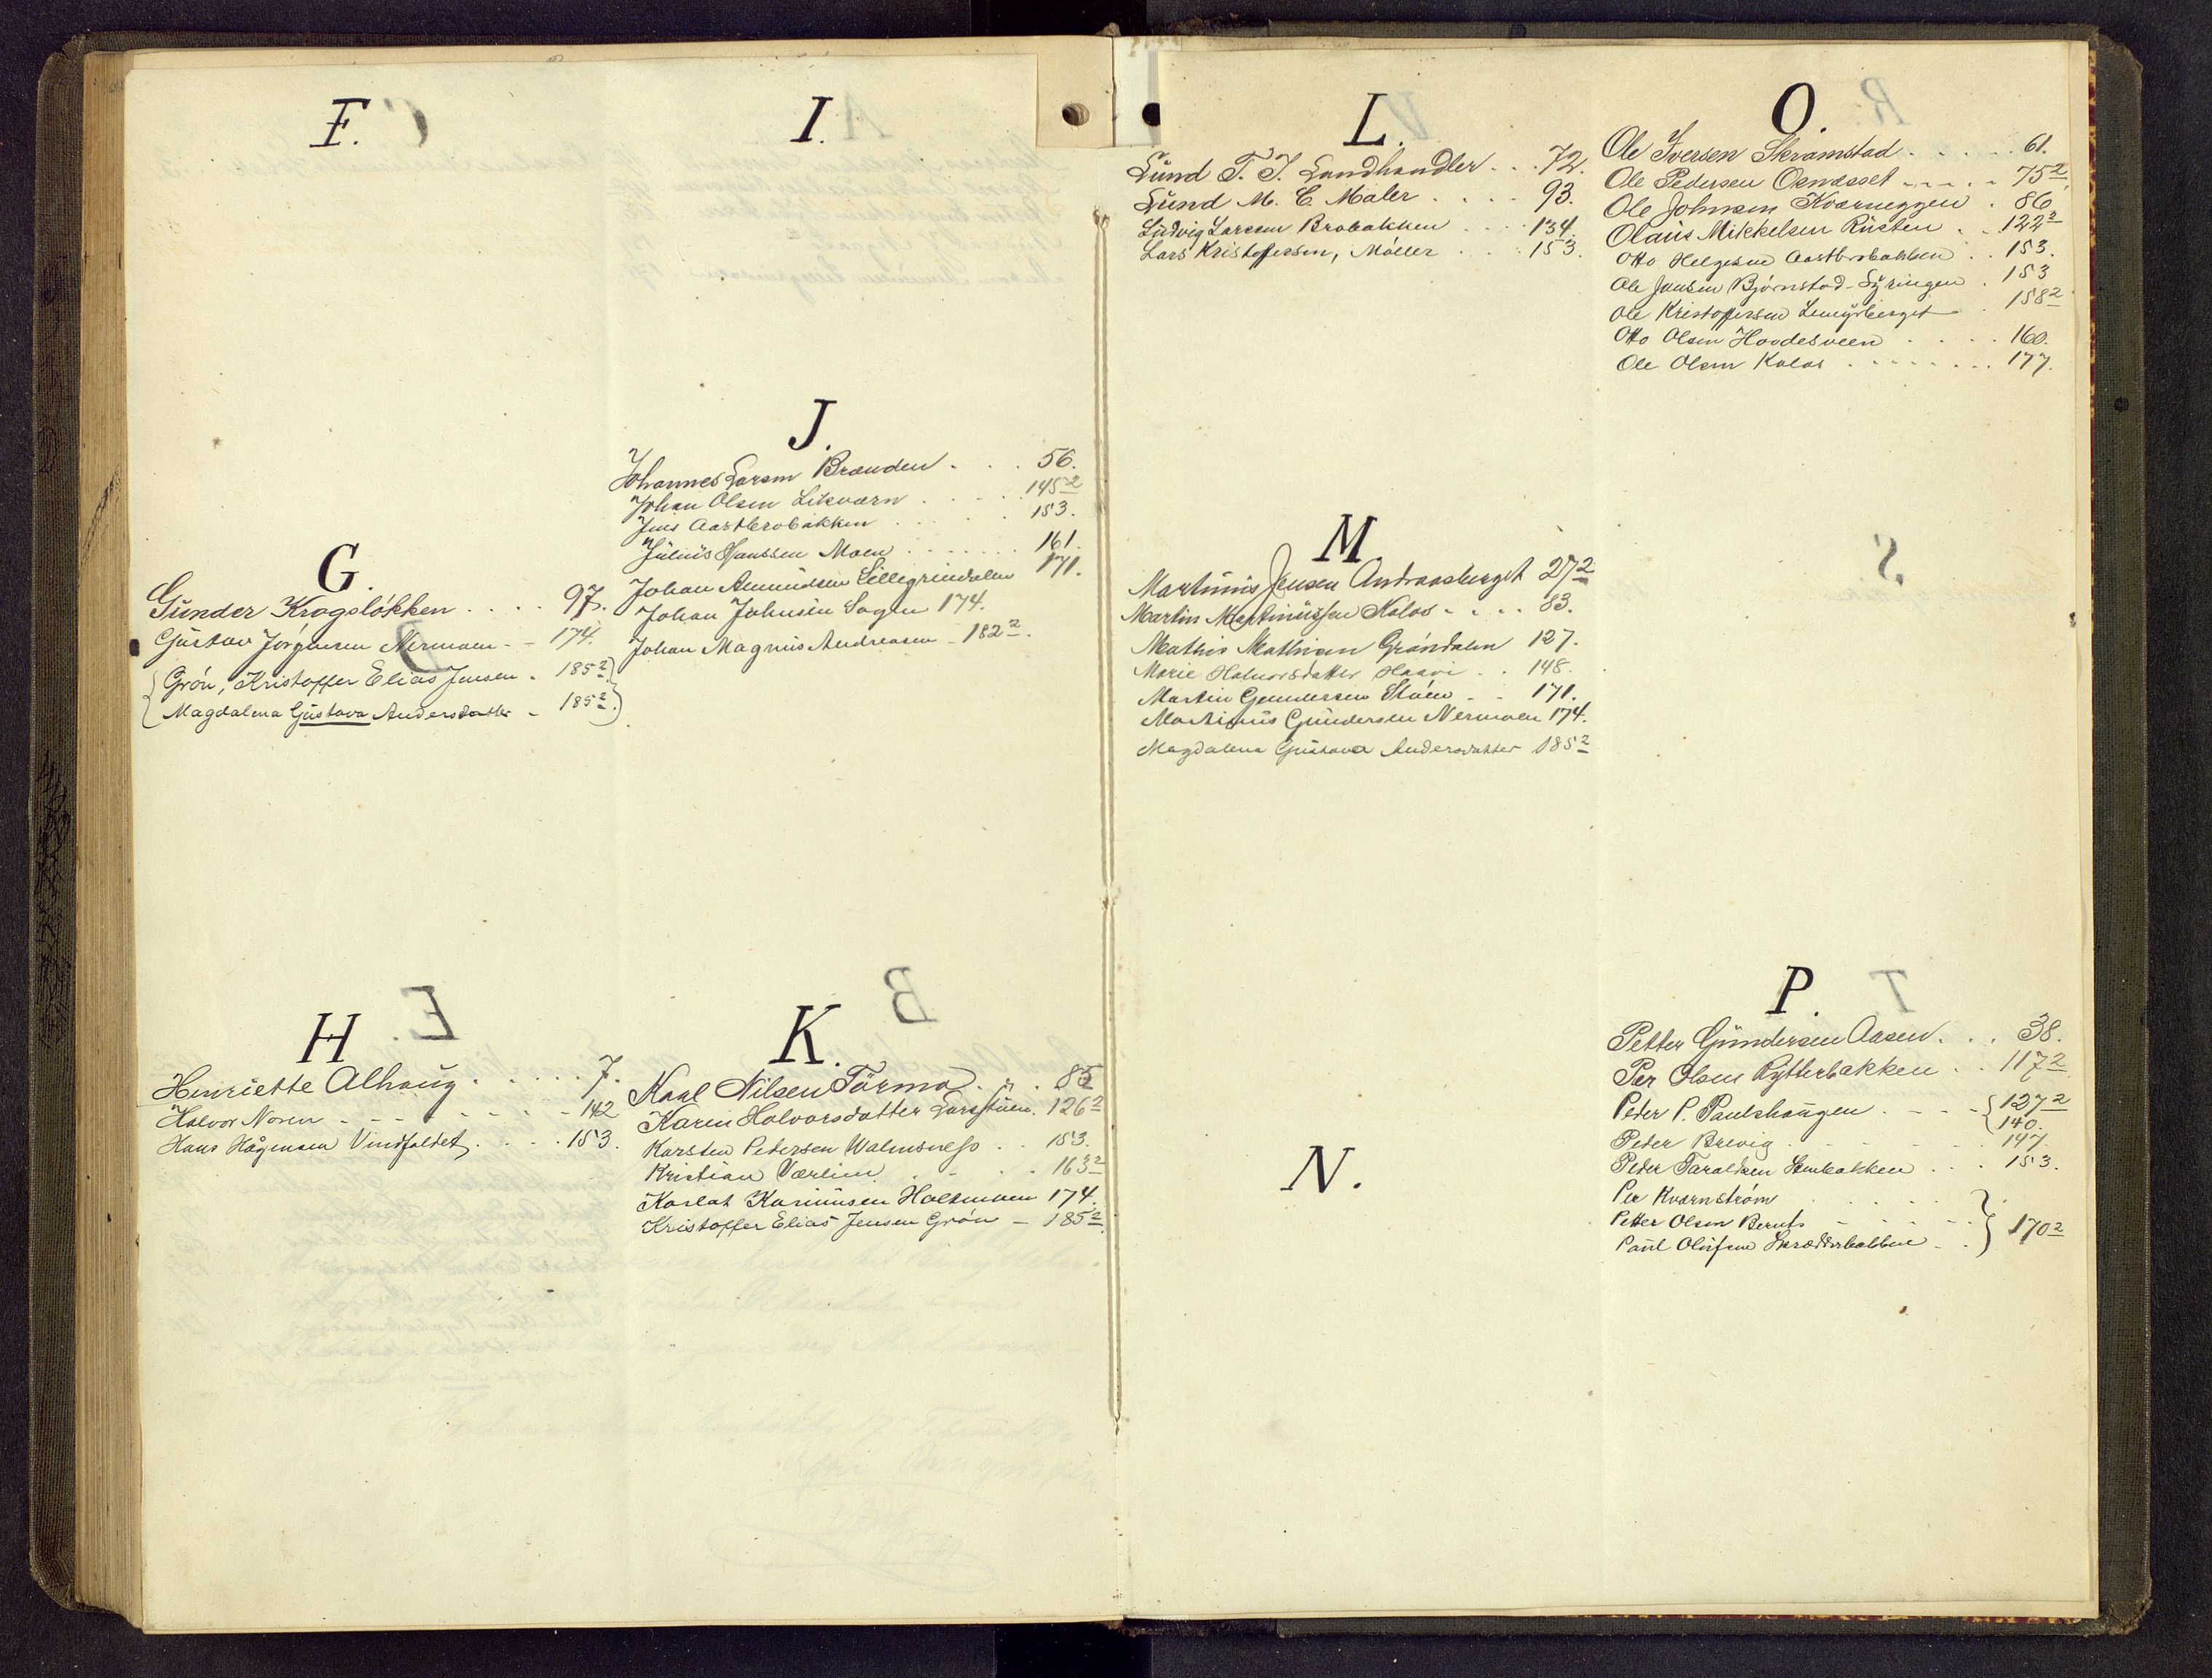 F.
G.
Gunder Kragsløkken . . . . 97.
Gustav Jørgensen Nermoen - - 174.
Grøn, Kristoffer Elias Jensen - 185 2
Magdalena Gustava Andersdatter - 185 2.
H
Henriette Alhaug . . . . . 7.
Halvor Noren - - - - - - 142
Hans Hågensen Vindfaldet . . . . 153.
I.
J.
Johannes Larsen Brænden . . . 56.
Johan Olsen Lilleværn . . . . 145 2
Jens Aastbrobakken . . . . . 153.
Julius Hanssen Moen . . . . . . . 161.
Johan Amundsen Lillegrindalen 171.
Johan Johnsen Sagen 174.
Johan Magnus Andreasen - 182 2.
K.
Karl Nilsen Tørmo . " . 85
Karen Halvorsdatter Larsstuen. 126 2
Karsten Pedersen Walmsness . . 153.
Kristian Værlien . . . . 163 2
Karlat Karinusen Holtmoen 174.
Kristoffer Elias Jensen Grøn - 185 2
L.
Lund T. J. Landhandler . . . 72.
Lund M. C. Maler . . . . 93.
Ludvig Larssen Brobakken . . . . 134.
Lars Kristoffersen, Møller . . . 153.
M.
Martinus Jensen Andraasberget 27 2
Martin Martinussen Kolos - . . . 83.
Mathis Mathisen Grøndalen 127.
Marie Halvorsdatter Haavi . . 148.
Martin Gundersen Støen - - 171.
Martinus Gundersen Nermoen 174.
Magdalena Gustava Andersdatter 185 2
N.
O.
Ole Iversen Skramstad . . . . . 61.
Ole Pedersen Osnæsset - - - . - 75 2
Ole Johnsen Kværneggen . 86
Olaus Mikkelsen Rusten . . 122 2
Otto Helgesen Aastbrobakken . . 153.
Ole Jensen Bjørnstad-Syringen . 153
Ole Kristoffersen . 158 2
Otto Olsen Hoodesveen . . . . . 160.
Ole Olsen Kolos . . . . . . . . 177.
P.
Petter Gundersen Aasen . . . 38.
Per Olsen Rytterbakken . . 117 2
Peder P. Paulshaugen . - - - 127 2
140.
Peder Brevig . . . . . . . 147.
Peder Taraldsen Stenbakken . . . 153.
Per Kværnstrøm . . . . .
Petter Olsen Berntz - - - - -
Paul Olufsen Skrædderbakken - . 170 2